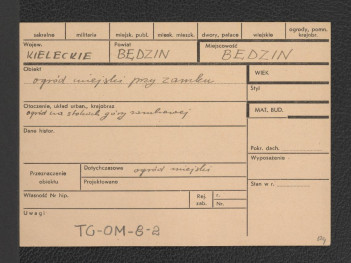 sakralne militaria miejsk. publ. miesk. mieszk. dwory, pałace wiejskie ogrody, pomn. krajobr.
Wojew. KIELECKIE Powiat BĘDZIN Miejscowość BĘDZIN
Obiekt ogród miejski przy zamku
WIEK
Styl
Otoczenie, układ urban., krajobraz
ogród na stokach góry zamkowej
MAT. BUD.
Dane histor.
Pokr. dach.
Przeznaczenie obiektu
Dotychczasowe ogród miejski
Projektowane
Wyposażenie
Własność Nr hip. Rej. zab. r. Nr.
Stan w r.
Uwagi
TG-OM-8-B